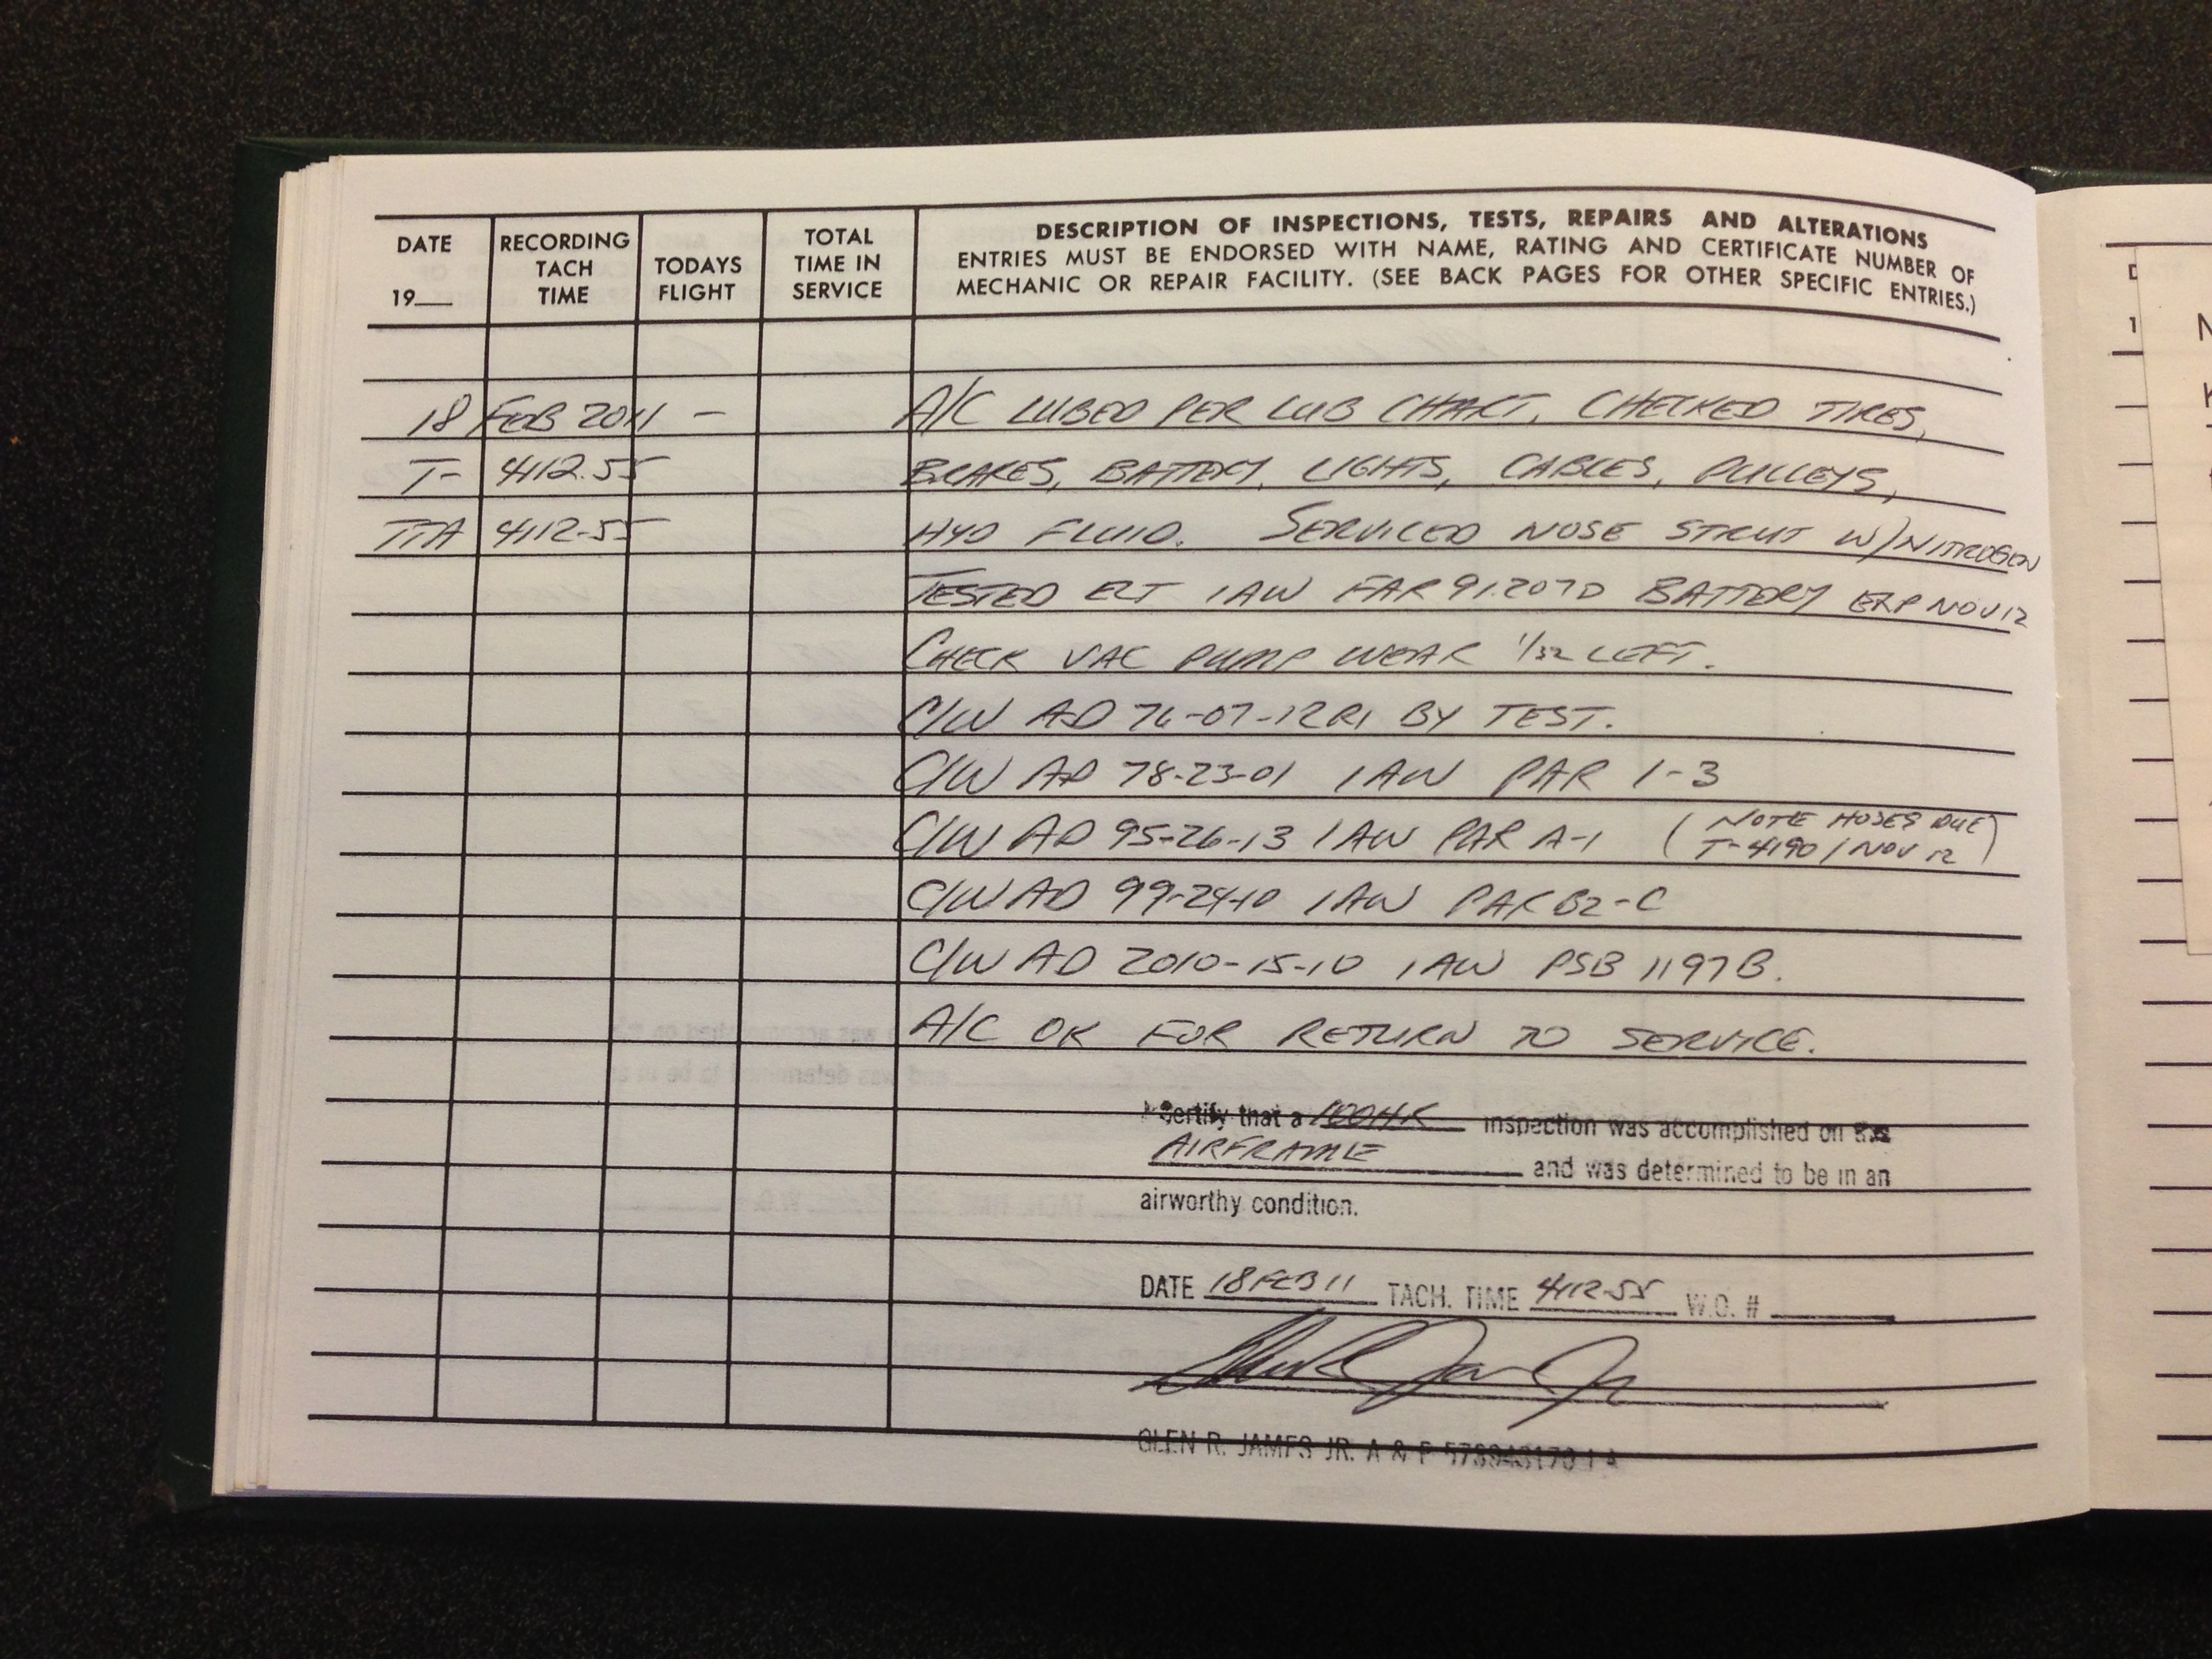 DATE
19__
RECORDING
TACH
TIME
TODAYS
FLIGHT
TOTAL
TIME IN
SERVICE
DESCRIPTION OF INSPECTIONS, TESTS, REPAIRS AND ALTERATIONS
ENTRIES MUST BE ENDORSED WITH NAME, RATING AND CERTIFICATE NUMBER OF
MECHANIC OR REPAIR FACILITY. (SEE BACK PAGES FOR OTHER SPECIFIC ENTRIES.)
18 FEB 2011 — A/C LUBED PER LUB CHART, CHECKED TIRES,
T- 4112.55 BRAKES, BATTERY, LIGHTS, CABLES, PULLEYS,
TTA 4112.55 HYD FLUID. SERVICED NOSE STRUT W/NITROGEN
TESTED ELT IAW FAR 91.207D BATTERY EXP NOV 12
CHECK VAC PUMP WEAR 1/32 LEFT.
C/W AD 76-07-12R1 BY TEST.
C/W AD 78-23-01 IAW PAR 1-3
C/W AD 95-26-13 IAW PAR A-1 (NOTE HOSES DUE
T-4190 / NOV 12)
C/W AD 99-24-10 IAW PAR B2-C
C/W AD 2010-15-10 IAW PSB 1197B.
A/C OK FOR RETURN TO SERVICE.
I certify that a 100HR inspection was accomplished on
AIRFRAME and was determined to be in an
airworthy condition.
DATE 18 FEB 11 TACH. TIME 4112.55 W.O. #
GLEN R. JAMES JR. A & P